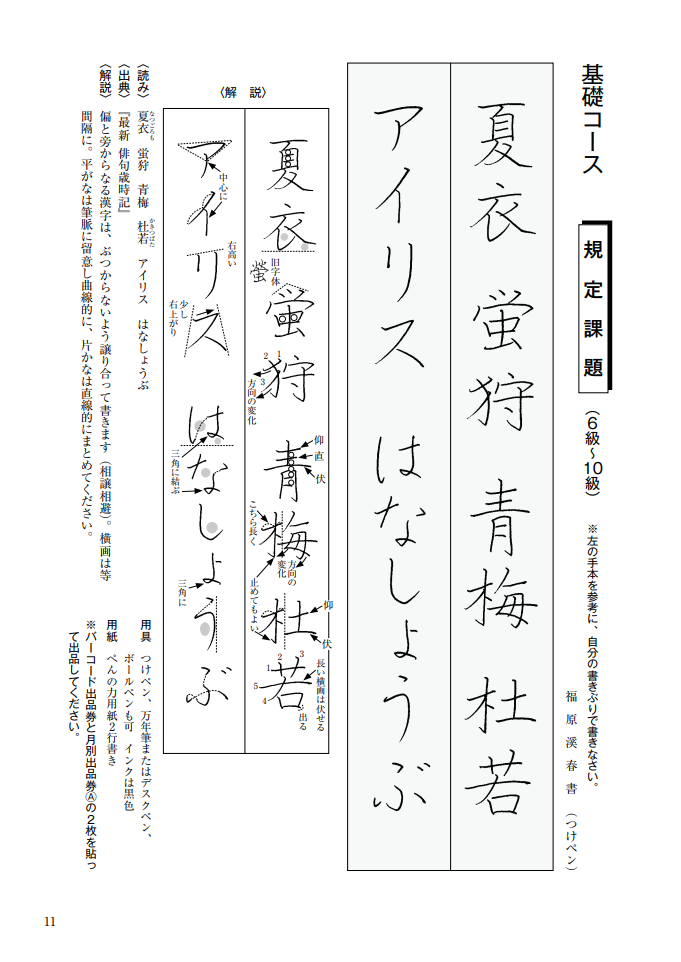 基礎コース
規定課題
（６級～10級）
※左の手本を参考に、自分の書きぶりで書きなさい。
福原溪春書　（つけペン）
夏衣　蛍狩　青梅　杜若
アイリス　はなしょうぶ
〈解　説〉
夏衣　蛍狩　青梅　杜若
旧字体
螢
1
2
3
方向の変化
仰
直
伏
こちら長く
方向の変化
止めてもよい
仰
伏
1
2
3
4
5
長い横画は伏せる
出る
アイリス　はなしょうぶ
中心に
右高い
少し右上がり
三角に結ぶ
三角に
〈読み〉　夏衣　蛍狩　青梅　杜若　アイリス　はなしょうぶ
なつごろも
かきつばた
〈出典〉　『最新 俳句歳時記』
〈解説〉　偏と旁からなる漢字は、ぶつからないよう譲り合って書きます（相譲相避）。横画は等
間隔に。平がなは筆脈に留意し曲線的に、片かなは直線的にまとめてください。
用具　つけペン、万年筆またはデスクペン、
ボールペンも可　インクは黒色
用紙　ぺんの力用紙２行書き
※バーコード出品券と月別出品券Ⓐの２枚を貼っ
て出品してください。
11